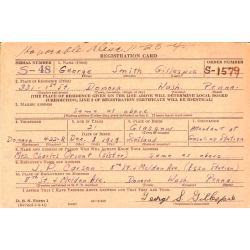 Honorable Disc. 1-28-4
REGISTRATION CARD
SERIAL NUMBER 1. NAME (Print) ORDER NUMBER
S-48 George Smith Gillespie S-1579
2. PLACE OF RESIDENCE (Print)
331-1st St. Donora Wash. Penna.
[THE PLACE OF RESIDENCE GIVEN ON THE LINE ABOVE WILL DETERMINE LOCAL BOARD
JURISDICTION; LINE 2 OF REGISTRATION CERTIFICATE WILL BE IDENTICAL]
3. MAILING ADDRESS
Same as above
4. TELEPHONE 5. AGE IN YEARS 6. PLACE OF BIRTH 7. OCCUPATION
21 Glasgow Attendant at
Donora 422-R Dec. 1919 Scotland Gasoline Station
8. NAME AND ADDRESS OF PERSON WHO WILL ALWAYS KNOW YOUR ADDRESS
Mrs. Charles (Sister) Same as above
9. EMPLOYER'S NAME AND ADDRESS
J. P. St. & Meldon Ave. (Esso Station)
10. PLACE OF EMPLOYMENT OR BUSINESS
St. & Meldon Ave. Donora Wash. Penna.
I AFFIRM THAT I HAVE VERIFIED ABOVE ANSWERS AND THAT THEY ARE TRUE.
D. S. S. Form 1
George S. Gillespie